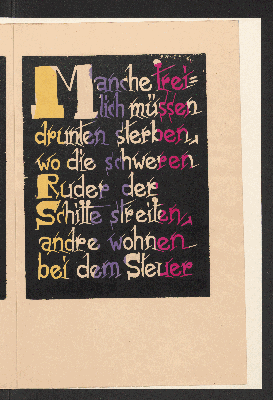 Manche frei=
lich müssen
drunten sterben,
wo die schweren
Ruder der
Schiffe streifen,
andre wohnen
bei dem Steuer